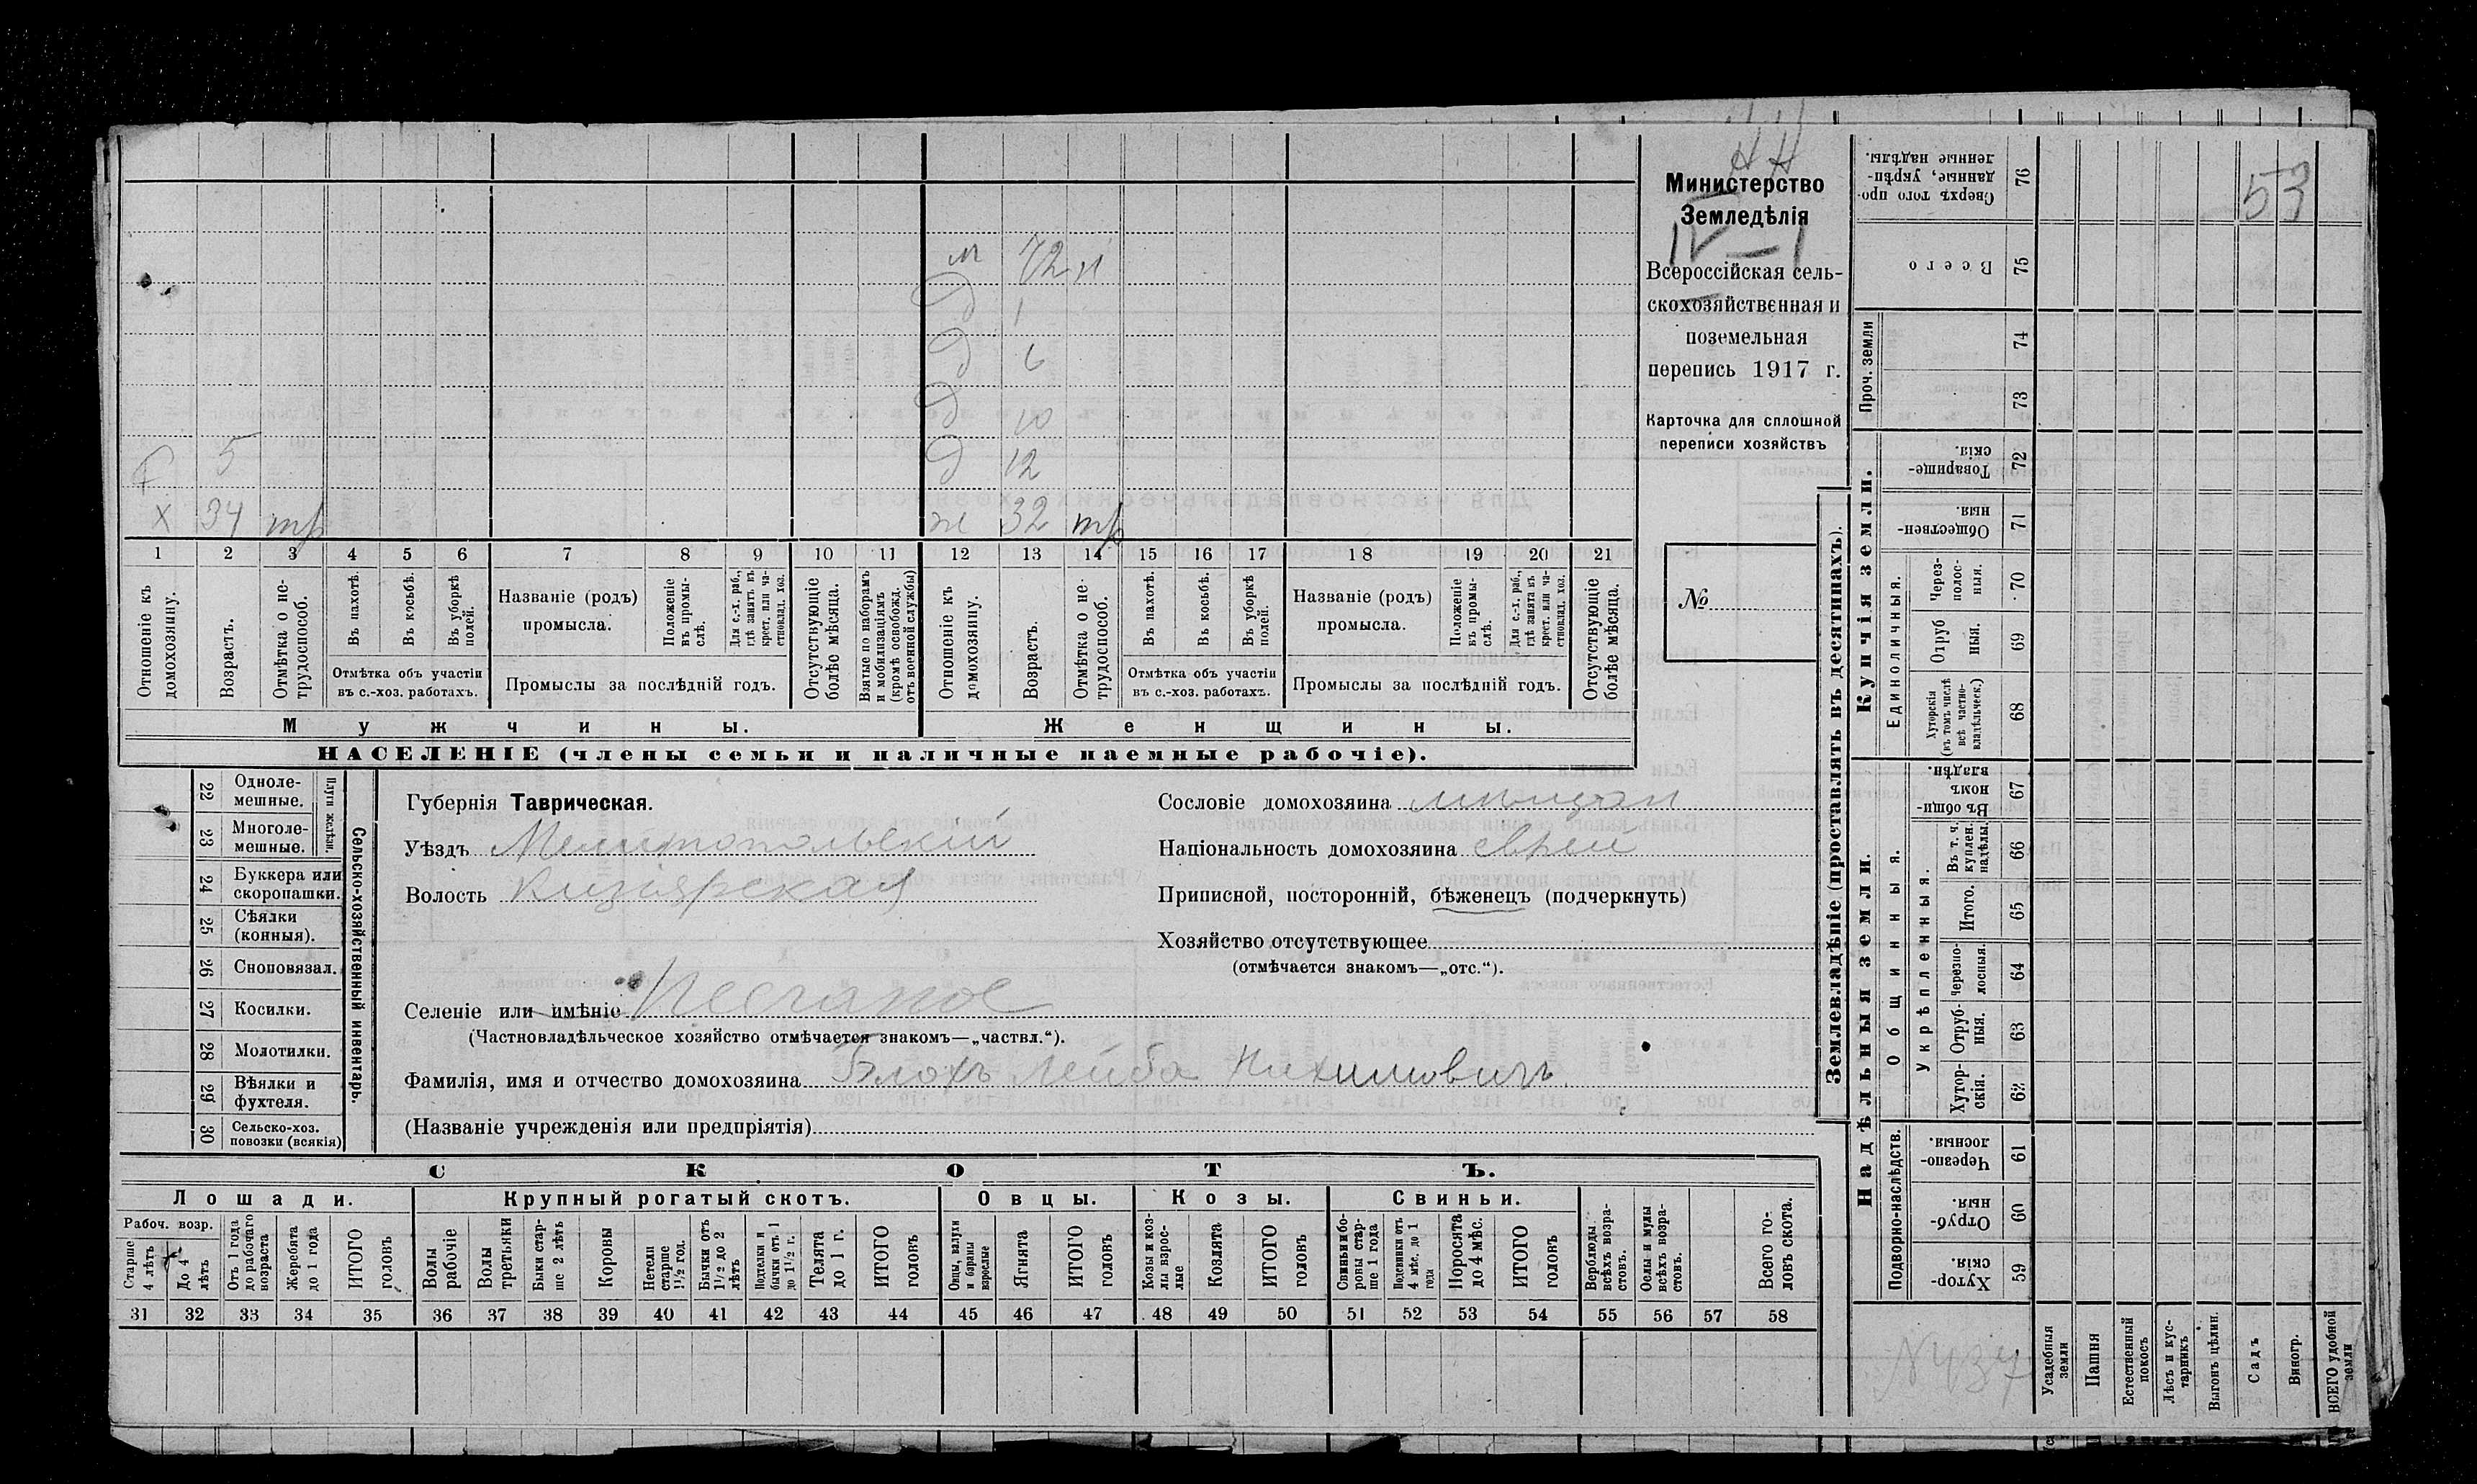 53
м 72 н
д 1
д 6
д 10
5 д 12
х 34 тр ж 32 тр
1 2 3 4 5 6 7 8 9 10 11 12 13 14 15 16 17 18 19 20 21
Отношеніе къ домохозяину.
Возрастъ.
Отмѣтка о не-
трудоспособ.
Въ пахотѣ.
Въ косьбѣ.
Въ уборкѣ
полей.
Отмѣтка объ участіи
въ с.-хоз. работахъ.
Названіе (родъ)
промысла.
Положеніе
въ промы-
слѣ.
Для с.-х. раб.,
гдѣ занятъ въ
крест. или ча-
стновлад. хоз.
Промыслы за послѣдній годъ.
Отсутствующіе
болѣе мѣсяца.
Взятые по наборамъ
и мобилизаціямъ
(кромѣ освобожд.
отъ военной службы)
Отношеніе къ
домохозяину.
Возрастъ.
Отмѣтка о не-
трудоспособ.
Въ пахотѣ.
Въ косьбѣ.
Въ уборкѣ
полей.
Отмѣтка объ участіи
въ с.-хоз. работахъ.
Названіе (родъ)
промысла.
Положеніе
въ промы-
слѣ.
Для с.-х. раб.,
гдѣ занята въ
крест. или ча-
стновлад. хоз.
Промыслы за послѣдній годъ.
Отсутствующіе
болѣе мѣсяца.
Мужчины. Женщины.
НАСЕЛЕНІЕ (члены семьи и наличные наемные рабочіе).
Министерство
Земледѣлія
IV-1
Всероссійская сель-
скохозяйственная и
поземельная
перепись 1917 г.
Карточка для сплошной
переписи хозяйствъ
№
22 Одноле-
мешные.
23 Многоле-
мешные.
Плуги желѣзн.
24 Буккера или
скоропашки.
25 Сѣялки
(конныя).
26 Сноповязал.
27 Косилки.
28 Молотилки.
29 Вѣялки и
фухтеля.
30 Сельско-хоз.
повозки (всякія)
Сельско-хозяйственный инвентарь.
Губернія Таврическая.
Уѣздъ Мелитопольскій
Волость Кизіярская
Селеніе или имѣніе Песчаное
(Частновладѣльческое хозяйство отмѣчается знакомъ—„частвл.“).
Фамилія, имя и отчество домохозяина Блохъ Лейба Нахимовичъ
(Названіе учрежденія или предпріятія)
Сословіе домохозяина мѣщан
Національность домохозяина еврей
Приписной, посторонній, бѣженецъ (подчеркнуть)
Хозяйство отсутствующее
(отмѣчается знакомъ—„отс.“).
СКОТЪ.
Лошади. Крупный рогатый скотъ. Овцы. Козы. Свиньи.
Рабоч. возр.
Старше
4 лѣтъ
До 4
лѣтъ
Отъ 1 года
до рабочаго
возраста
Жеребята
до 1 года
ИТОГО
головъ
Волы
рабочіе
Волы
третьяки
Быки стар-
ше 2 лѣтъ
Коровы
Нетели
старше
1½ год.
Бычки отъ
1½ до 2
лѣтъ
Подтелки и
бычки отъ 1
до 1½ г.
Телята
до 1 г.
ИТОГО
головъ
Овцы, валухи
и бараны
взрослые
Ягнята
ИТОГО
головъ
Козы и коз-
лы взрос-
лые
Козлята
ИТОГО
головъ
Свиньи и бо-
ровы стар-
ше 1 года
Подсвинки отъ
4 мѣс. до 1
года
Поросята
до 4 мѣс.
ИТОГО
головъ
Верблюды
всѣхъ возра-
стовъ.
Ослы и мулы
всѣхъ возра-
стовъ.
Всего го-
ловъ скота.
31 32 33 34 35 36 37 38 39 40 41 42 43 44 45 46 47 48 49 50 51 52 53 54 55 56 57 58
Землевладѣніе (проставлять въ десятинахъ).
Купчія земли.
Надѣльныя земли.
Сверхъ того про-
данные, укрѣп-
ленные надѣлы.
76
Всего 75
Проч. земли
74
73
Товарище-
скія. 72
Обществен-
ныя. 71
Единоличныя.
Через-
полос-
ныя. 70
Отруб
ныя. 69
Хуторскія
(въ томъ числѣ
всѣ частно-
владѣльческ.) 68
Общинныя.
Въ общи-
номъ
владѣн. 67
Укрѣпленныя.
Въ т. ч.
куплен.
надѣлы. 66
Итого. 65
Черезпо-
лосныя. 64
Отруб-
ныя. 63
Хутор-
скія. 62
Подворно-наслѣдств.
Черезпо-
лосныя. 61
Отруб-
ныя. 60
Хутор-
скія. 59
Усадебныя
земли
Пашня
Естественный
покосъ
Лѣсъ и кус-
тарникъ
Выгонъ цѣлин.
Садъ
Виногр.
ВСЕГО удобной
земли